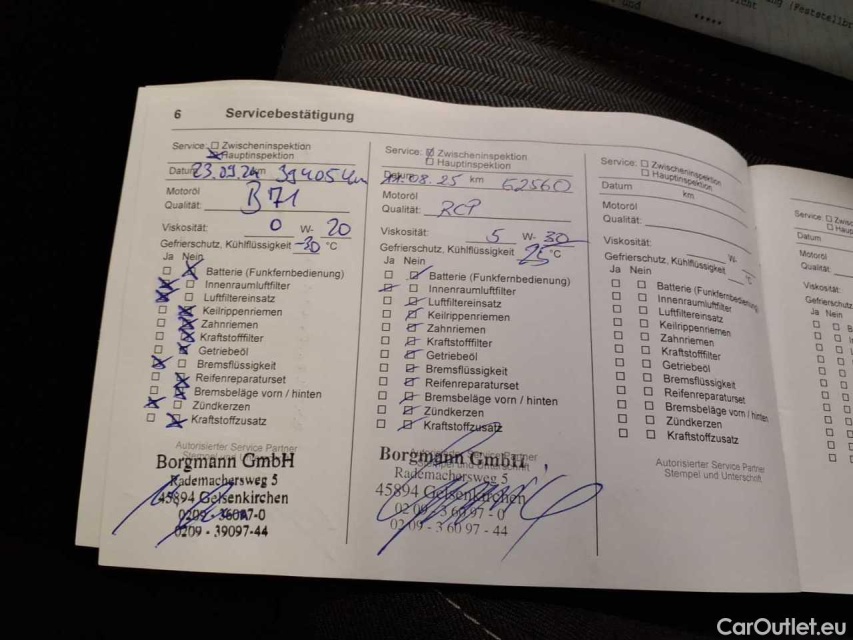 6 Servicebestätigung
Service: Zwischeninspektion
Hauptinspektion
Datum 23.09.24 km 39405 km
Motoröl
Qualität: B71
Viskosität: 0 W- 20
Gefrierschutz, Kühlflüssigkeit -30 °C
Ja Nein
Batterie (Funkfernbedienung)
Innenraumluftfilter
Luftfiltereinsatz
Keilrippenriemen
Zahnriemen
Kraftstofffilter
Getriebeöl
Bremsflüssigkeit
Reifenreparaturset
Bremsbeläge vorn / hinten
Zündkerzen
Kraftstoffzusatz
Autorisierter Service Partner
Stempel und
Borgmann GmbH
Rademachersweg 5
45894 Gelsenkirchen
0209 - 36097-0
0209 - 39097-44
Service: Zwischeninspektion
Hauptinspektion
Datum 11.08.25 km 62560
Motoröl
Qualität: RCP
Viskosität: 5 W- 30
Gefrierschutz, Kühlflüssigkeit 25 °C
Ja Nein
Batterie (Funkfernbedienung)
Innenraumluftfilter
Luftfiltereinsatz
Keilrippenriemen
Zahnriemen
Kraftstofffilter
Getriebeöl
Bremsflüssigkeit
Reifenreparaturset
Bremsbeläge vorn / hinten
Zündkerzen
Kraftstoffzusatz
Autorisierter Service Partner
Stempel und Unterschrift
Borgmann GmbH
Rademachersweg 5
45894 Gelsenkirchen
02 09 - 3 60 97 - 0
02 09 - 3 60 97 - 44
Service: Zwischeninspektion
Hauptinspektion
Datum km
Motoröl
Qualität:
Viskosität: W-
Gefrierschutz, Kühlflüssigkeit °C
Ja Nein
Batterie (Funkfernbedienung)
Innenraumluftfilter
Luftfiltereinsatz
Keilrippenriemen
Zahnriemen
Kraftstofffilter
Getriebeöl
Bremsflüssigkeit
Reifenreparaturset
Bremsbeläge vorn / hinten
Zündkerzen
Kraftstoffzusatz
Autorisierter Service Partner
Stempel und Unterschrift
Service:
Datum
Motoröl
Qualität:
Viskosität:
Ja Nein
CarOutlet.eu